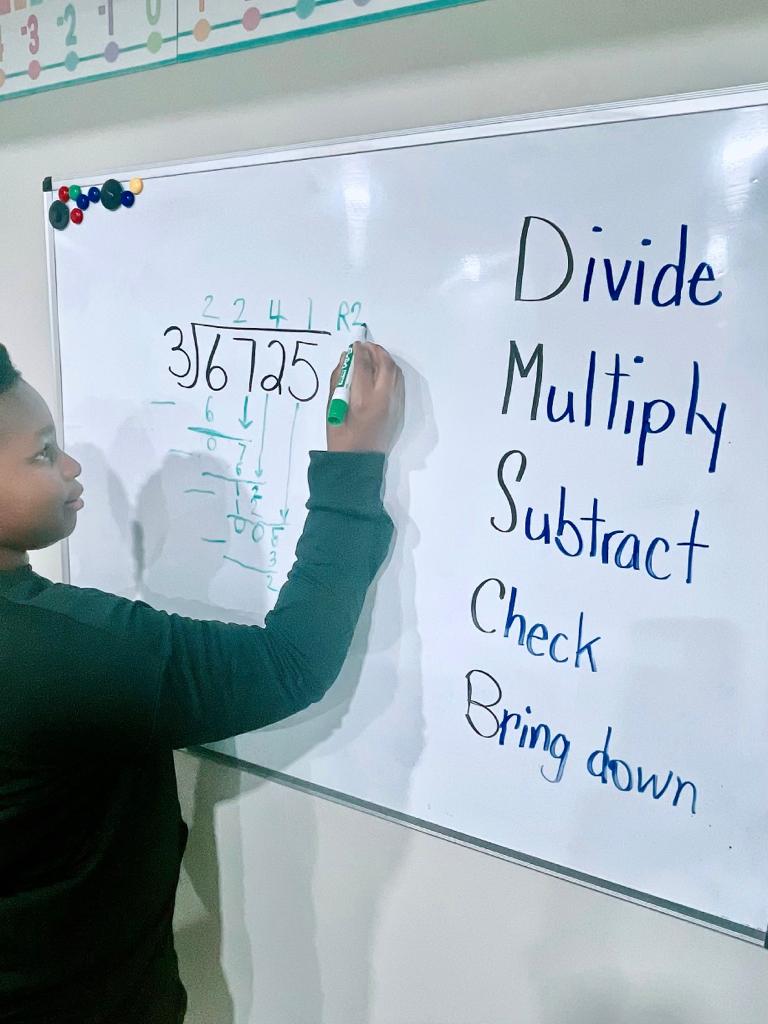 -3 -2 -1 0
2 2 4 1 R2
3)6725
- 6
0 7
- 6
1 2
- 1 2
0 0 5
- 3
2
Divide
Multiply
Subtract
Check
Bring down